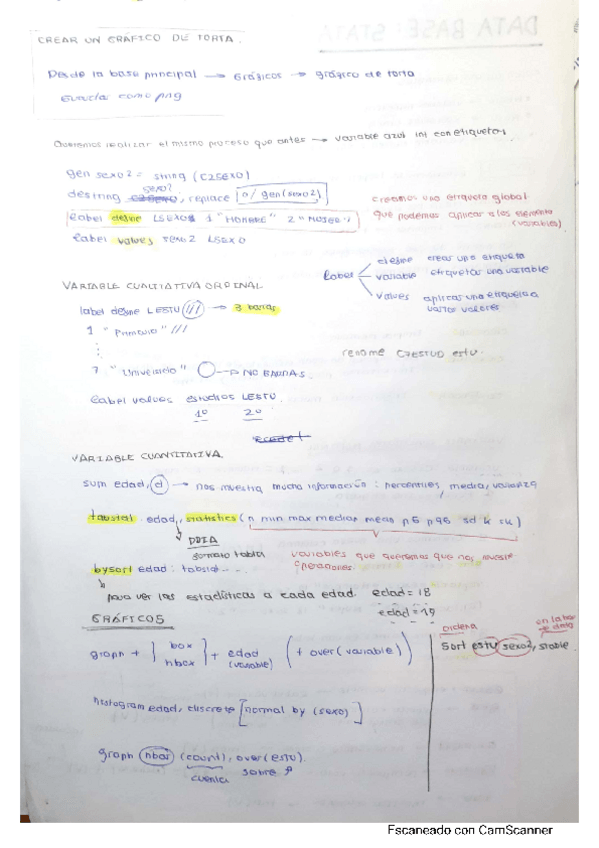 CREAR UN GRÁFICO DE TORTA.
Desde la base principal → Gráficos → gráfico de torta
Guardar como png
Queremos realizar el mismo proceso que antes → variable azul int con etiquetas
gen sexo2 = string (C2SEXO)
destring sexo2, replace o/ gen(sexo2)
label define LSEXO 1 "HOMBRE" 2 "MUJER"
label values sexo2 LSEXO
creamos una etiqueta global
que podemos aplicar a los elementos
(variables)
label
define crear una etiqueta
variable etiquetar una variable
values aplicas una etiqueta a
varios valores
VARIABLE CUALITATIVA ORDINAL
label define LESTU /// → 3 barras
1 "Primario" ///
7 "Universitario" → NO BARRAS.
rename C7ESTUD estu.
label values estudios LESTU
1º 2º
VARIABLE CUANTITATIVA
sum edad, d → nos muestra mucha información: percentiles, media, varianza
tabstat edad, statistics (n min max median mean p5 p95 sd k sk)
formato tabla
variables que queremos que nos muestre
operaciones.
bysort edad: tabstat ...
para ver las estadísticas a cada edad. edad = 18
edad = 19
GRÁFICOS
graph + } box hbox } + edad (variable) (+ over(variable))
ordena
en la base
de datos
Sort estu sexo2, stable
histogram edad, discrete [normal by (sexo)]
graph hbar (count), over(estu).
cuenta sobre
Escaneado con CamScanner